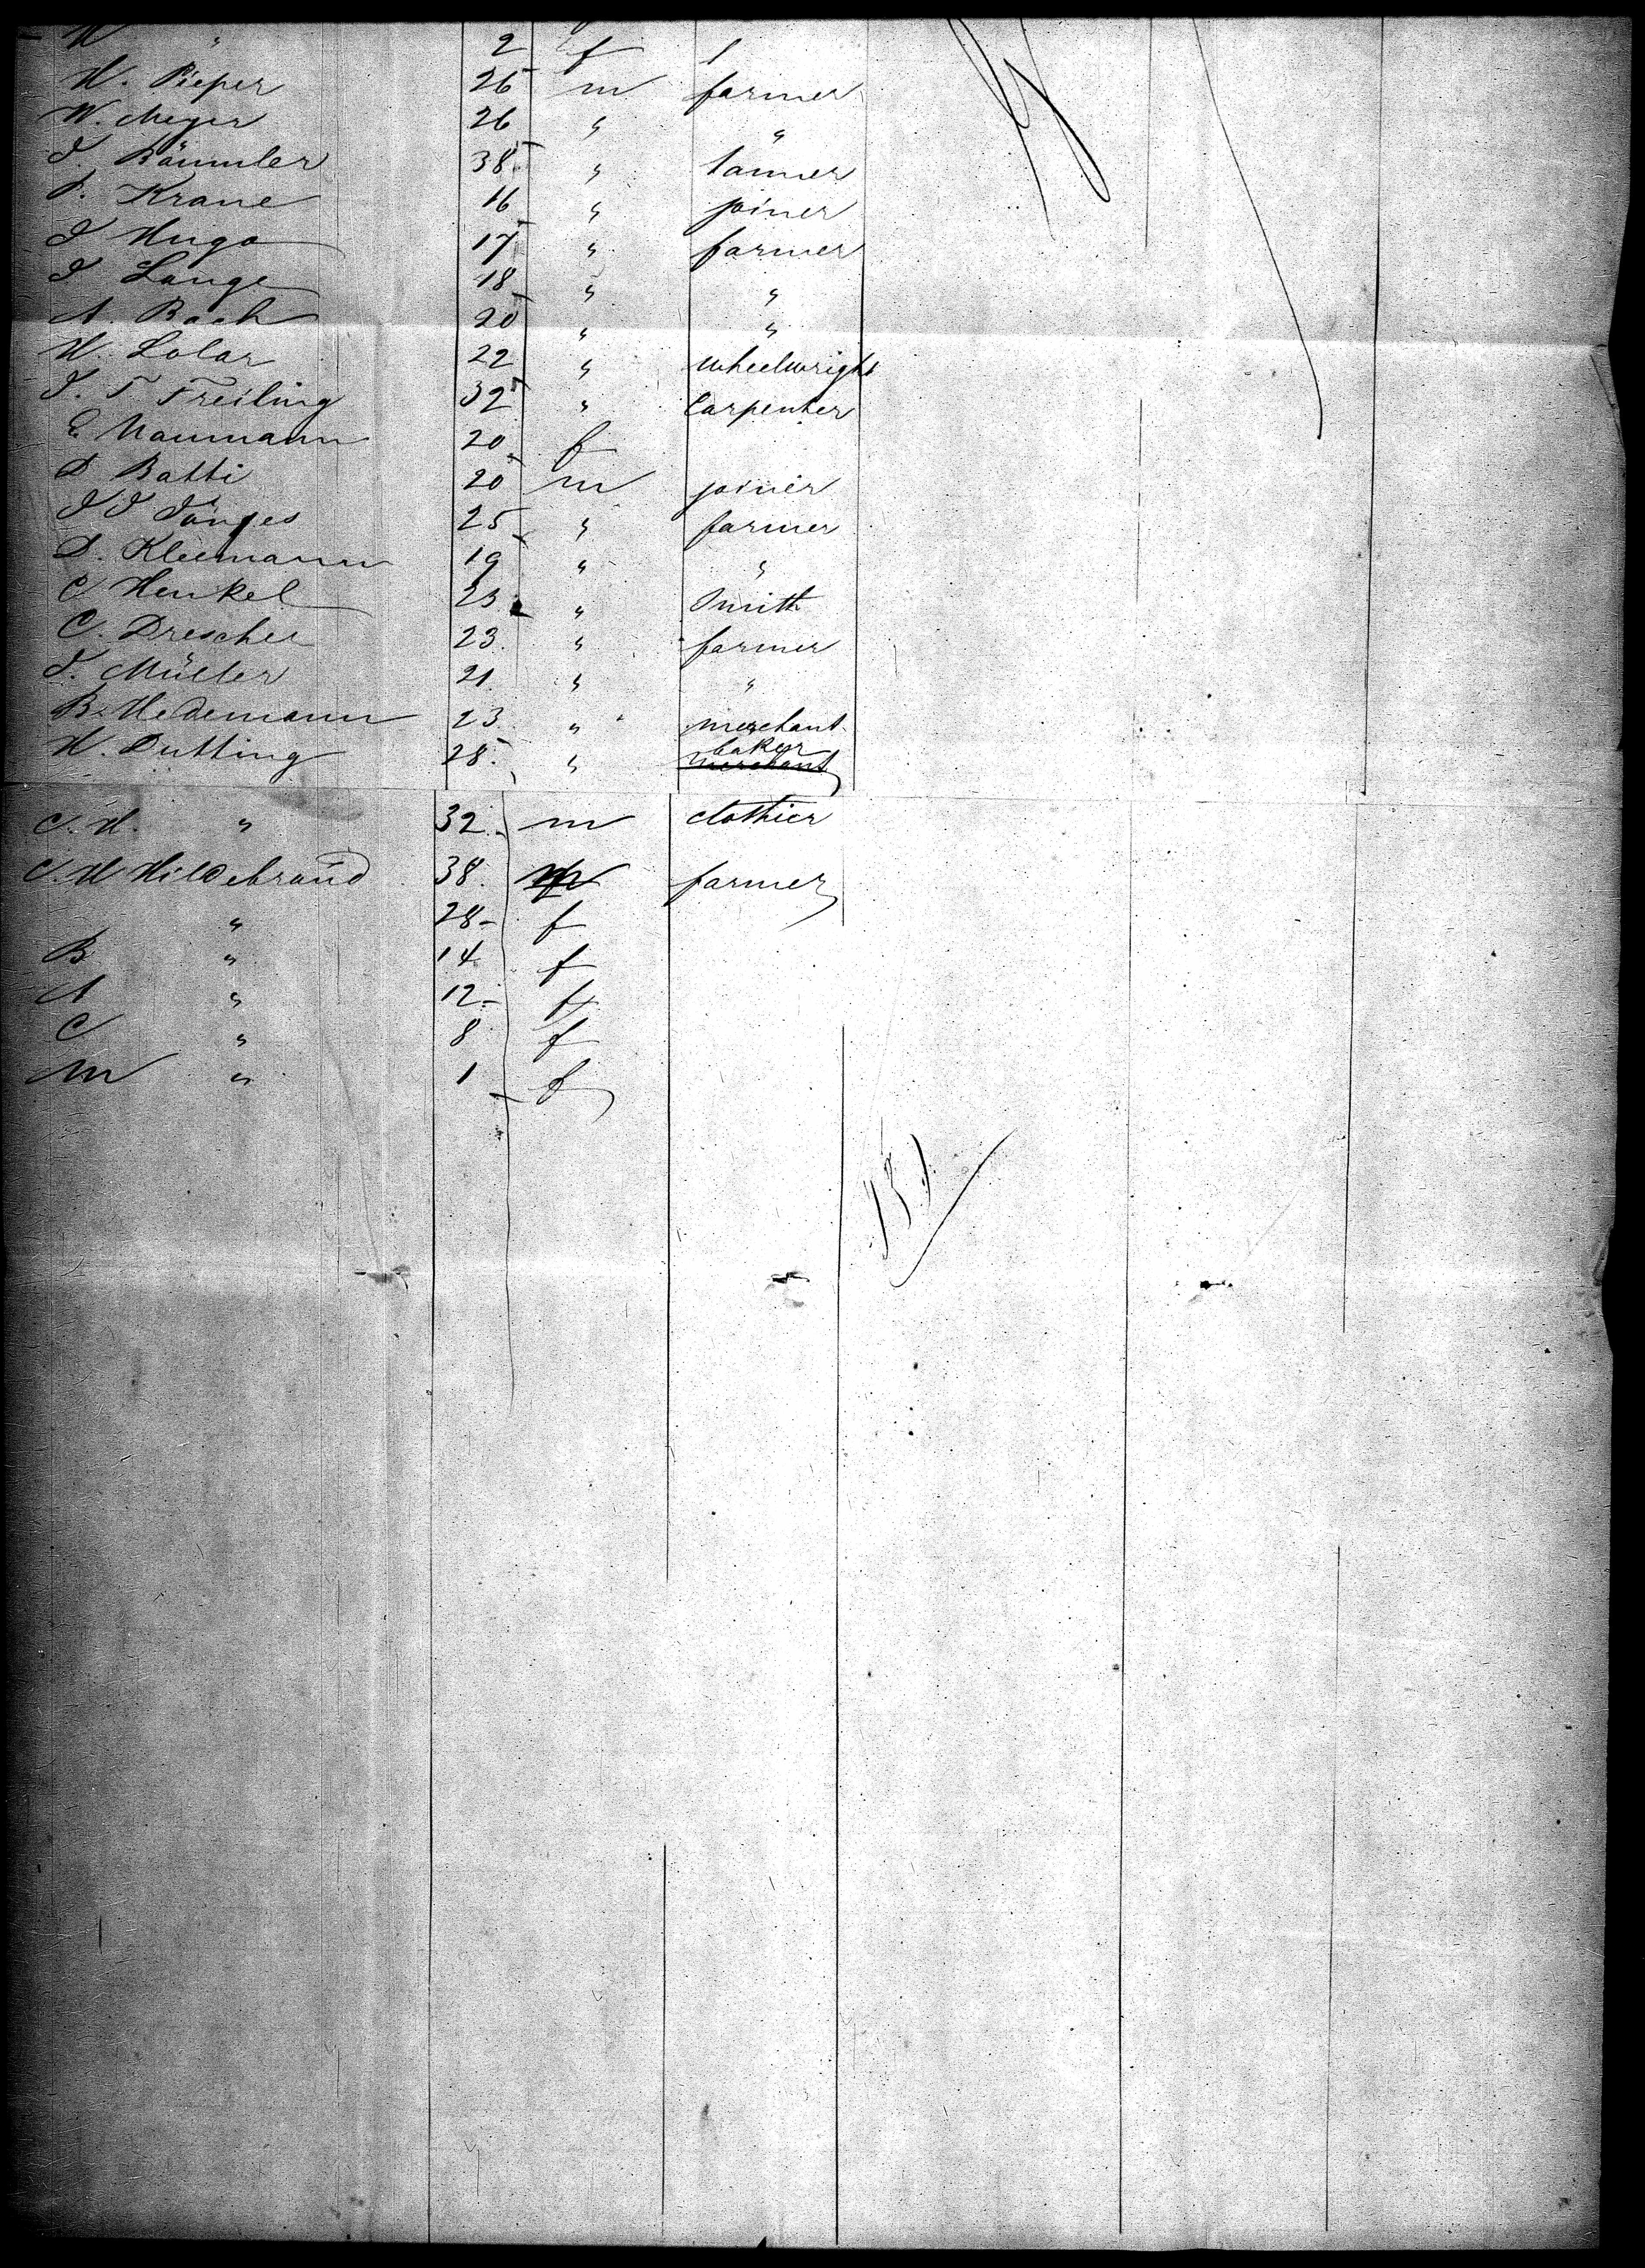 W " 2 f
H. Pieper 26 m farmer
W. Meyer 26 " "
J. Bäumler 38 " tanner
P. Krane 16 " joiner
J Hugo 17 " farmer
J Lange 18 " "
A. Bach 20 " "
H. Lolar 22 " wheelwright
J. T Freiling 32 " Carpenter
E Naumann 20 f
D. Batti 20 m joiner
J J Jönges 25 " farmer
D. Kleemann 19 " "
C Henkel 23 " Smith
C. Drescher 23 " farmer
J. Müller 21 " "
B. Hedemann 23 " merchant
H. Dutting 28 " baker merchant
C. H. " 32 m clothier
C. H Hildebrand 38 m farmer
" 28 f
B " 14 f
A " 12 f
C " 8 f
M " 1 f